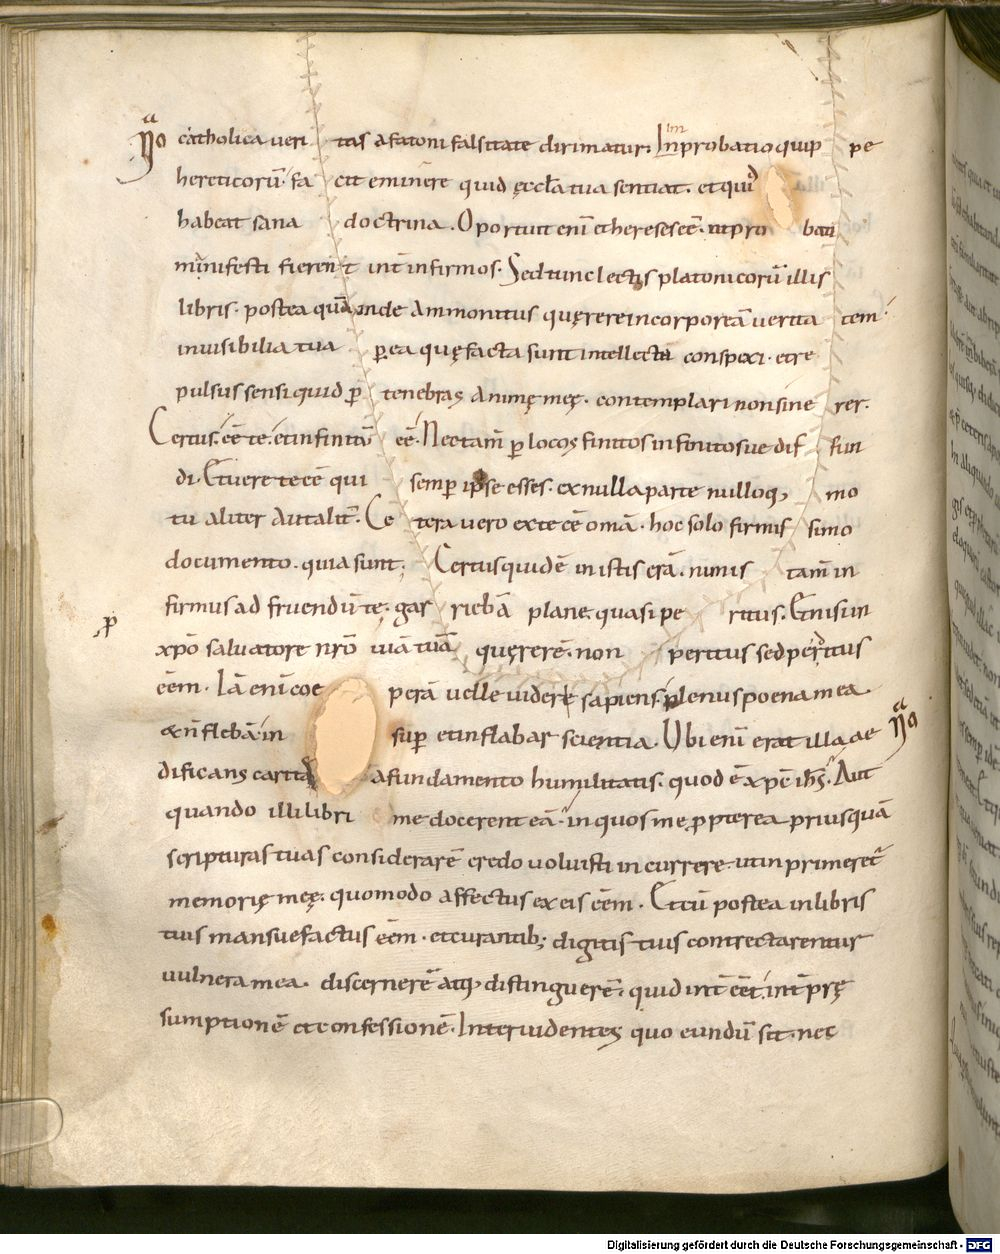 catholica veritas afatoni falsitate dirimatur. Inprobatio quippe
hereticorū. facit eminere quid ęccłatua sentiat. et quid
habeat sana doctrina. Oportuit enī et hereses eē. ut probati
manifesti fierent int infirmos. Sed tunc lectis platonicorū illis
libris. postea quā inde Ammonitus quęrere incorporeā veritatem.
invisibilia tua p̄ ea quę facta sunt intellecta conspexi. et re
pulsus sensi quid p̄ tenebras Animę meę. contemplari non sinerer.
Certus. eē te. et infinitū eē. Nec tam̄ p̄ locos finitos infinitosue diffun
di. Et uere te eē qui semp̄ ipse esses. ex nulla parte nulloq, mo
tu aliter Aut alit̄. Cetera vero ex te eē omā. hoc solo firmissimo
documento. quia sunt. Certus quidē in istis erā. nimis tam̄ in
firmus ad fruendū te. garriebā plane. quasi peritus. Et nisi in
xp̄o salvatore nr̄o uiā tuā quęrerē. non peritus sed periturus
eēm. Iā enī coeperā uelle videre sapiens. plenus poena mea
& n̄ flebā. insup̄ et inflabar scientia. Ubi enī erat illa ae
dificans carita a fundamento humilitatis. quod ē xp̄c ihs̄. Aut
quando illi libri me docerent eā. in quos me p̄pterea priusquā
scripturas tuas considerarē credo voluisti incurrere. ut in primeret̄
memorię meę. quomodo affectus ex eis eēm. Et cū postea in libris
tuis mansuefactus eēm. et curantib; digitis tuis contrectarentur
uulnera mea. discernerē atq, distinguerē. quid int̄ eēt. int̄ prę
sumptionē et confessionē. Inter videntes quo eundū sit. nec
Digitalisierung gefördert durch die Deutsche Forschungsgemeinschaft - DFG